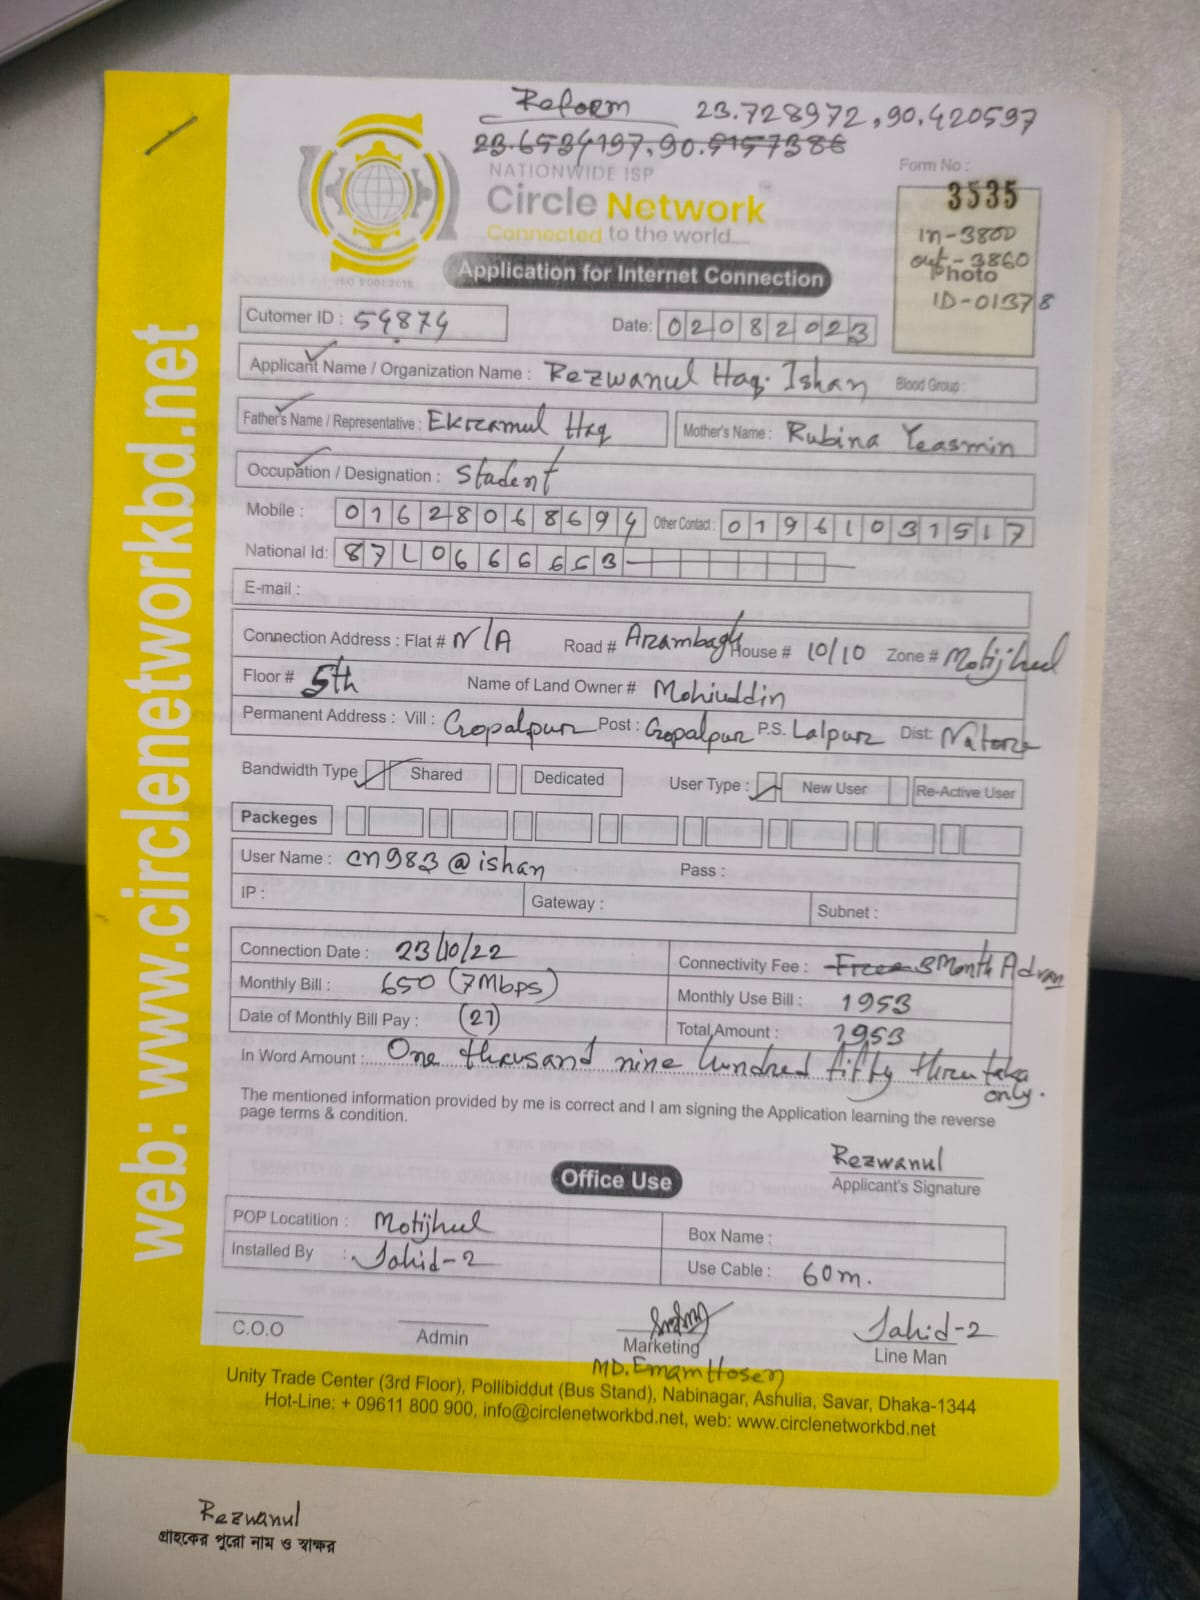 Reform 23.728972, 90.420597
23.6534197, 90.5157386
NATIONWIDE ISP
Circle Network
Connected to the world....
ISO 9001:2015
Application for Internet Connection
Form No :
3535
in-3800
out-3860
Photo
ID-01378
web: www.circlenetworkbd.net
Cutomer ID : 59874 Date: 02082023
Applicant Name / Organization Name : Rezwanul Haq. Ishan Blood Group :
Father's Name / Representative : Ekramul Haq Mother's Name : Rubina Yeasmin
Occupation / Designation : Student
Mobile : 01628068694 Other Contact : 01961031517
National Id: 87L0666663
E-mail :
Connection Address : Flat # N/A Road # Arambagh House # 10/10 Zone # Motijheel
Floor # 5th Name of Land Owner # Mohiuddin
Permanent Address : Vill : Gopalpur Post : Gopalpur P.S. Lalpur Dist: Natore
Bandwidth Type Shared Dedicated User Type : New User Re-Active User
Packeges
User Name : cn983@ishan Pass :
IP : Gateway : Subnet :
Connection Date : 23/10/22 Connectivity Fee : Free 3 Month Advan
Monthly Bill : 650 (7Mbps) Monthly Use Bill : 1953
Date of Monthly Bill Pay : (21) Total Amount : 1953
In Word Amount : One thousand nine hundred fifty three taka only.
The mentioned information provided by me is correct and I am signing the Application learning the reverse
page terms & condition.
Rezwanul
Applicant's Signature
Office Use
POP Locatition : Motijheel Box Name :
Installed By : Jahid-2 Use Cable : 60m.
Jahid-2
C.O.O Admin Marketing Line Man
MD. Emam Hosen
Unity Trade Center (3rd Floor), Pollibiddut (Bus Stand), Nabinagar, Ashulia, Savar, Dhaka-1344
Hot-Line: + 09611 800 900, info@circlenetworkbd.net, web: www.circlenetworkbd.net
Rezwanul
গ্রাহকের পুরো নাম ও স্বাক্ষর